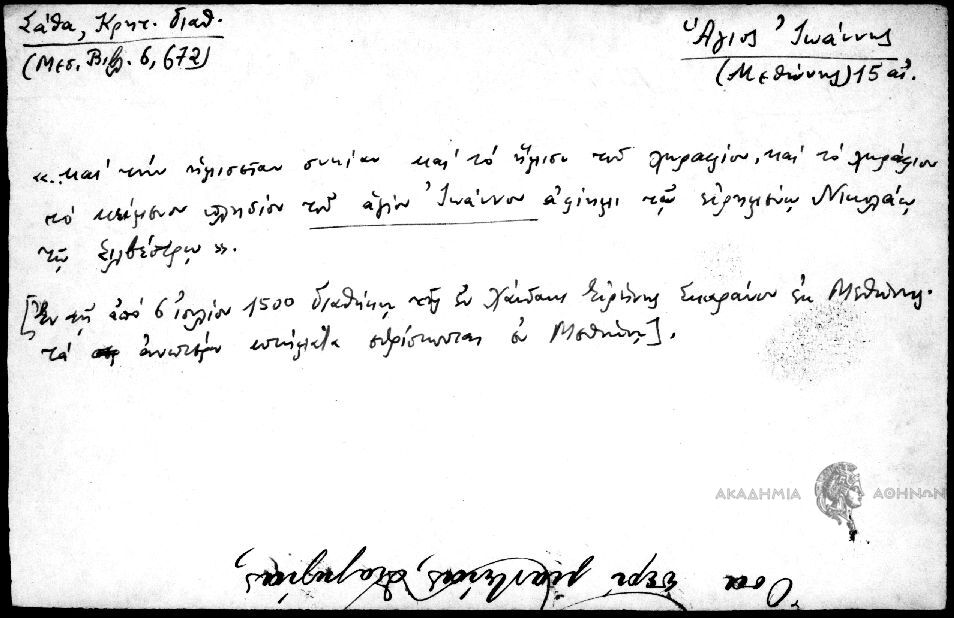 Σάθα, Κρητ. διαθ.
(Μεσ. Βιβλ. 6, 672)
Ἅγιος Ἰωάννης
(Μεθώνης) 15 αἰ.
«..καὶ τὴν ἡμισείαν συκίαν καὶ τὸ ἥμισυ τοῦ χωραφίου, καὶ τὸ χωράφιον
τὸ κείμενον πλησίον τοῦ ἁγίου Ἰωάννου ἀφίημι τῷ εἰρημένῳ Νικολάῳ
τῷ Σιλβέστρῳ».
[Ἐν τῇ ἀπὸ 6 Ἰουλίου 1500 διαθήκῃ τῆς ἐν Χάνδακι Εἰρήνης Σκαράνου ἐκ Μεθώνης.
τὰ ἀνωτέρω κτήματα εὑρίσκονται ἐν Μεθώνῃ].
ΑΚΑΔΗΜΙΑ ΑΘΗΝΩΝ
Ὅσα περὶ μαντείας,